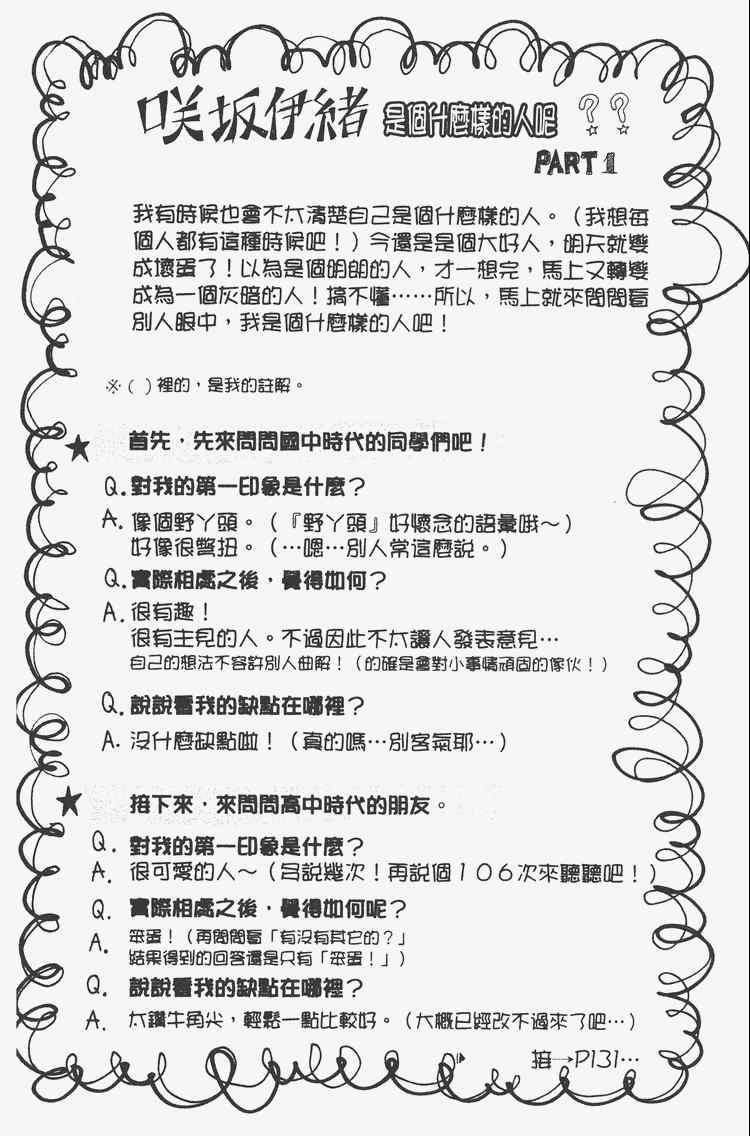 咲坂伊緒 是個什麼樣的人呢??
PART 1
我有時候也會不太清楚自己是個什麼樣的人。(我想每
個人都有這種時候吧!)今還是是個大好人,明天就變
成壞蛋了!以為是個明朗的人,才一想完,馬上又轉變
成為一個灰暗的人!搞不懂……所以,馬上就來問問看
別人眼中,我是個什麼樣的人吧!
※( )裡的,是我的註解。
★ 首先,先來問問國中時代的同學們吧!
Q.對我的第一印象是什麼?
A.像個野丫頭。(『野丫頭』好懷念的語彙哦~)
好像很彆扭。(…嗯…別人常這麼說。)
Q.實際相處之後,覺得如何?
A.很有趣!
很有主見的人。不過因此不太讓人發表意見…
自己的想法不容許別人曲解!(的確是會對小事情頑固的傢伙!)
Q.說說看我的缺點在哪裡?
A.沒什麼缺點啦!(真的嗎…別客氣耶…)
★ 接下來,來問問高中時代的朋友。
Q.對我的第一印象是什麼?
A.很可愛的人~(多說幾次!再說個106次來聽聽吧!)
Q.實際相處之後,覺得如何呢?
A.笨蛋!(再問問看「有沒有其它的?」
結果得到的回答還是只有「笨蛋!」)
Q.說說看我的缺點在哪裡?
A.太鑽牛角尖,輕鬆一點比較好。(大概已經改不過來了吧…)
接→P131…